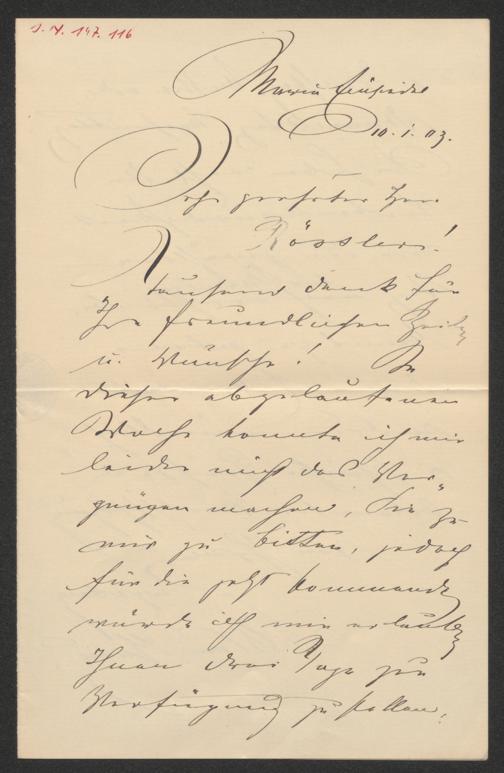 J. N. 147.116
Maria Einsiedel
10. I. 03.
Sehr geehrter Herr
Rössler!
Tausend Dank für
Ihre freundlichen Zeilen
u. Wünsche! In
dieser abgelaufenen
Woche konnte ich mir
leider nicht das Ver-
gnügen machen, Sie zu
mir zu bitten, jedoch
für die jetzt kommende
würde ich mir erlauben
Ihnen drei Tage zur
Verfügung zu stellen,